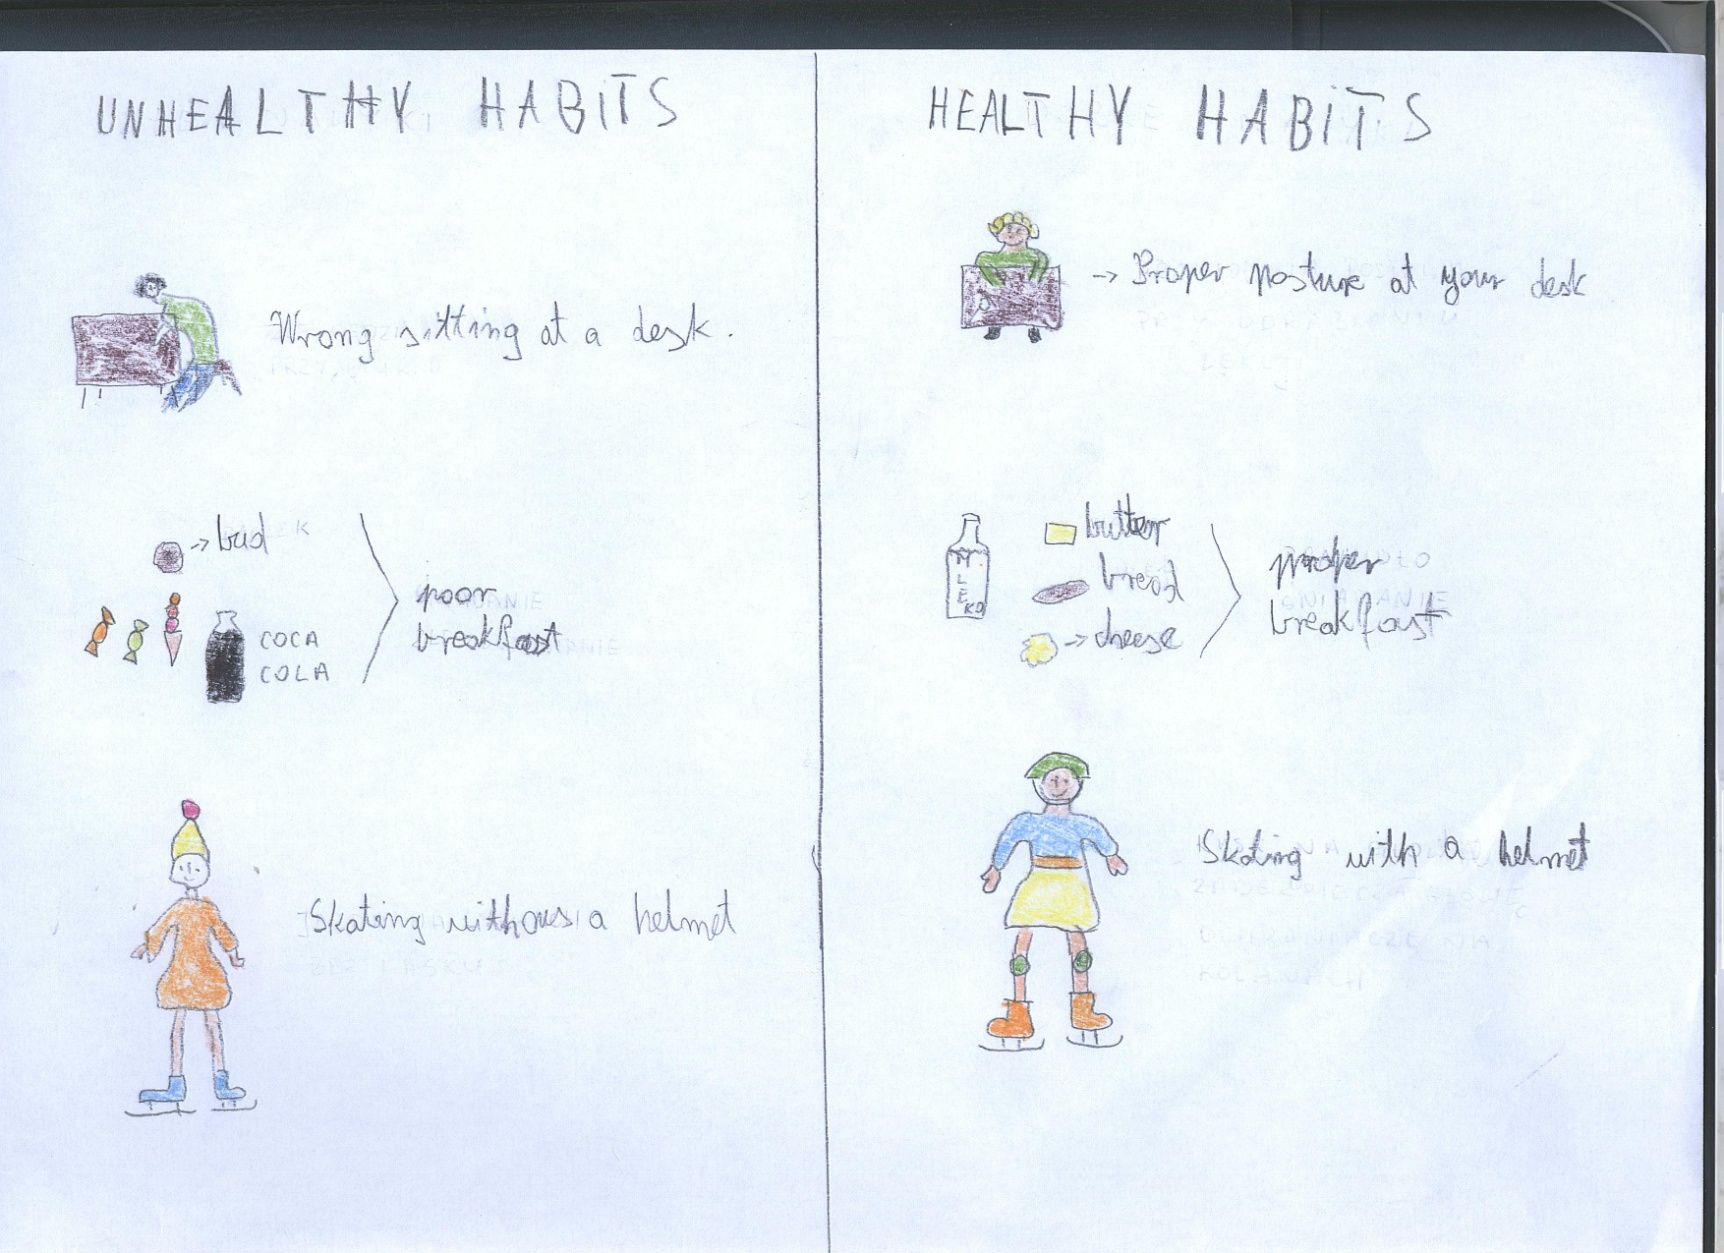 UNHEALTHY HABITS
Wrong sitting at a desk.
bud
COCA
COLA
poor
breakfast
Skating without a helmet
HEALTHY HABITS
Proper posture at your desk
MLEKO
butter
bread
cheese
proper
breakfast
Skating with a helmet